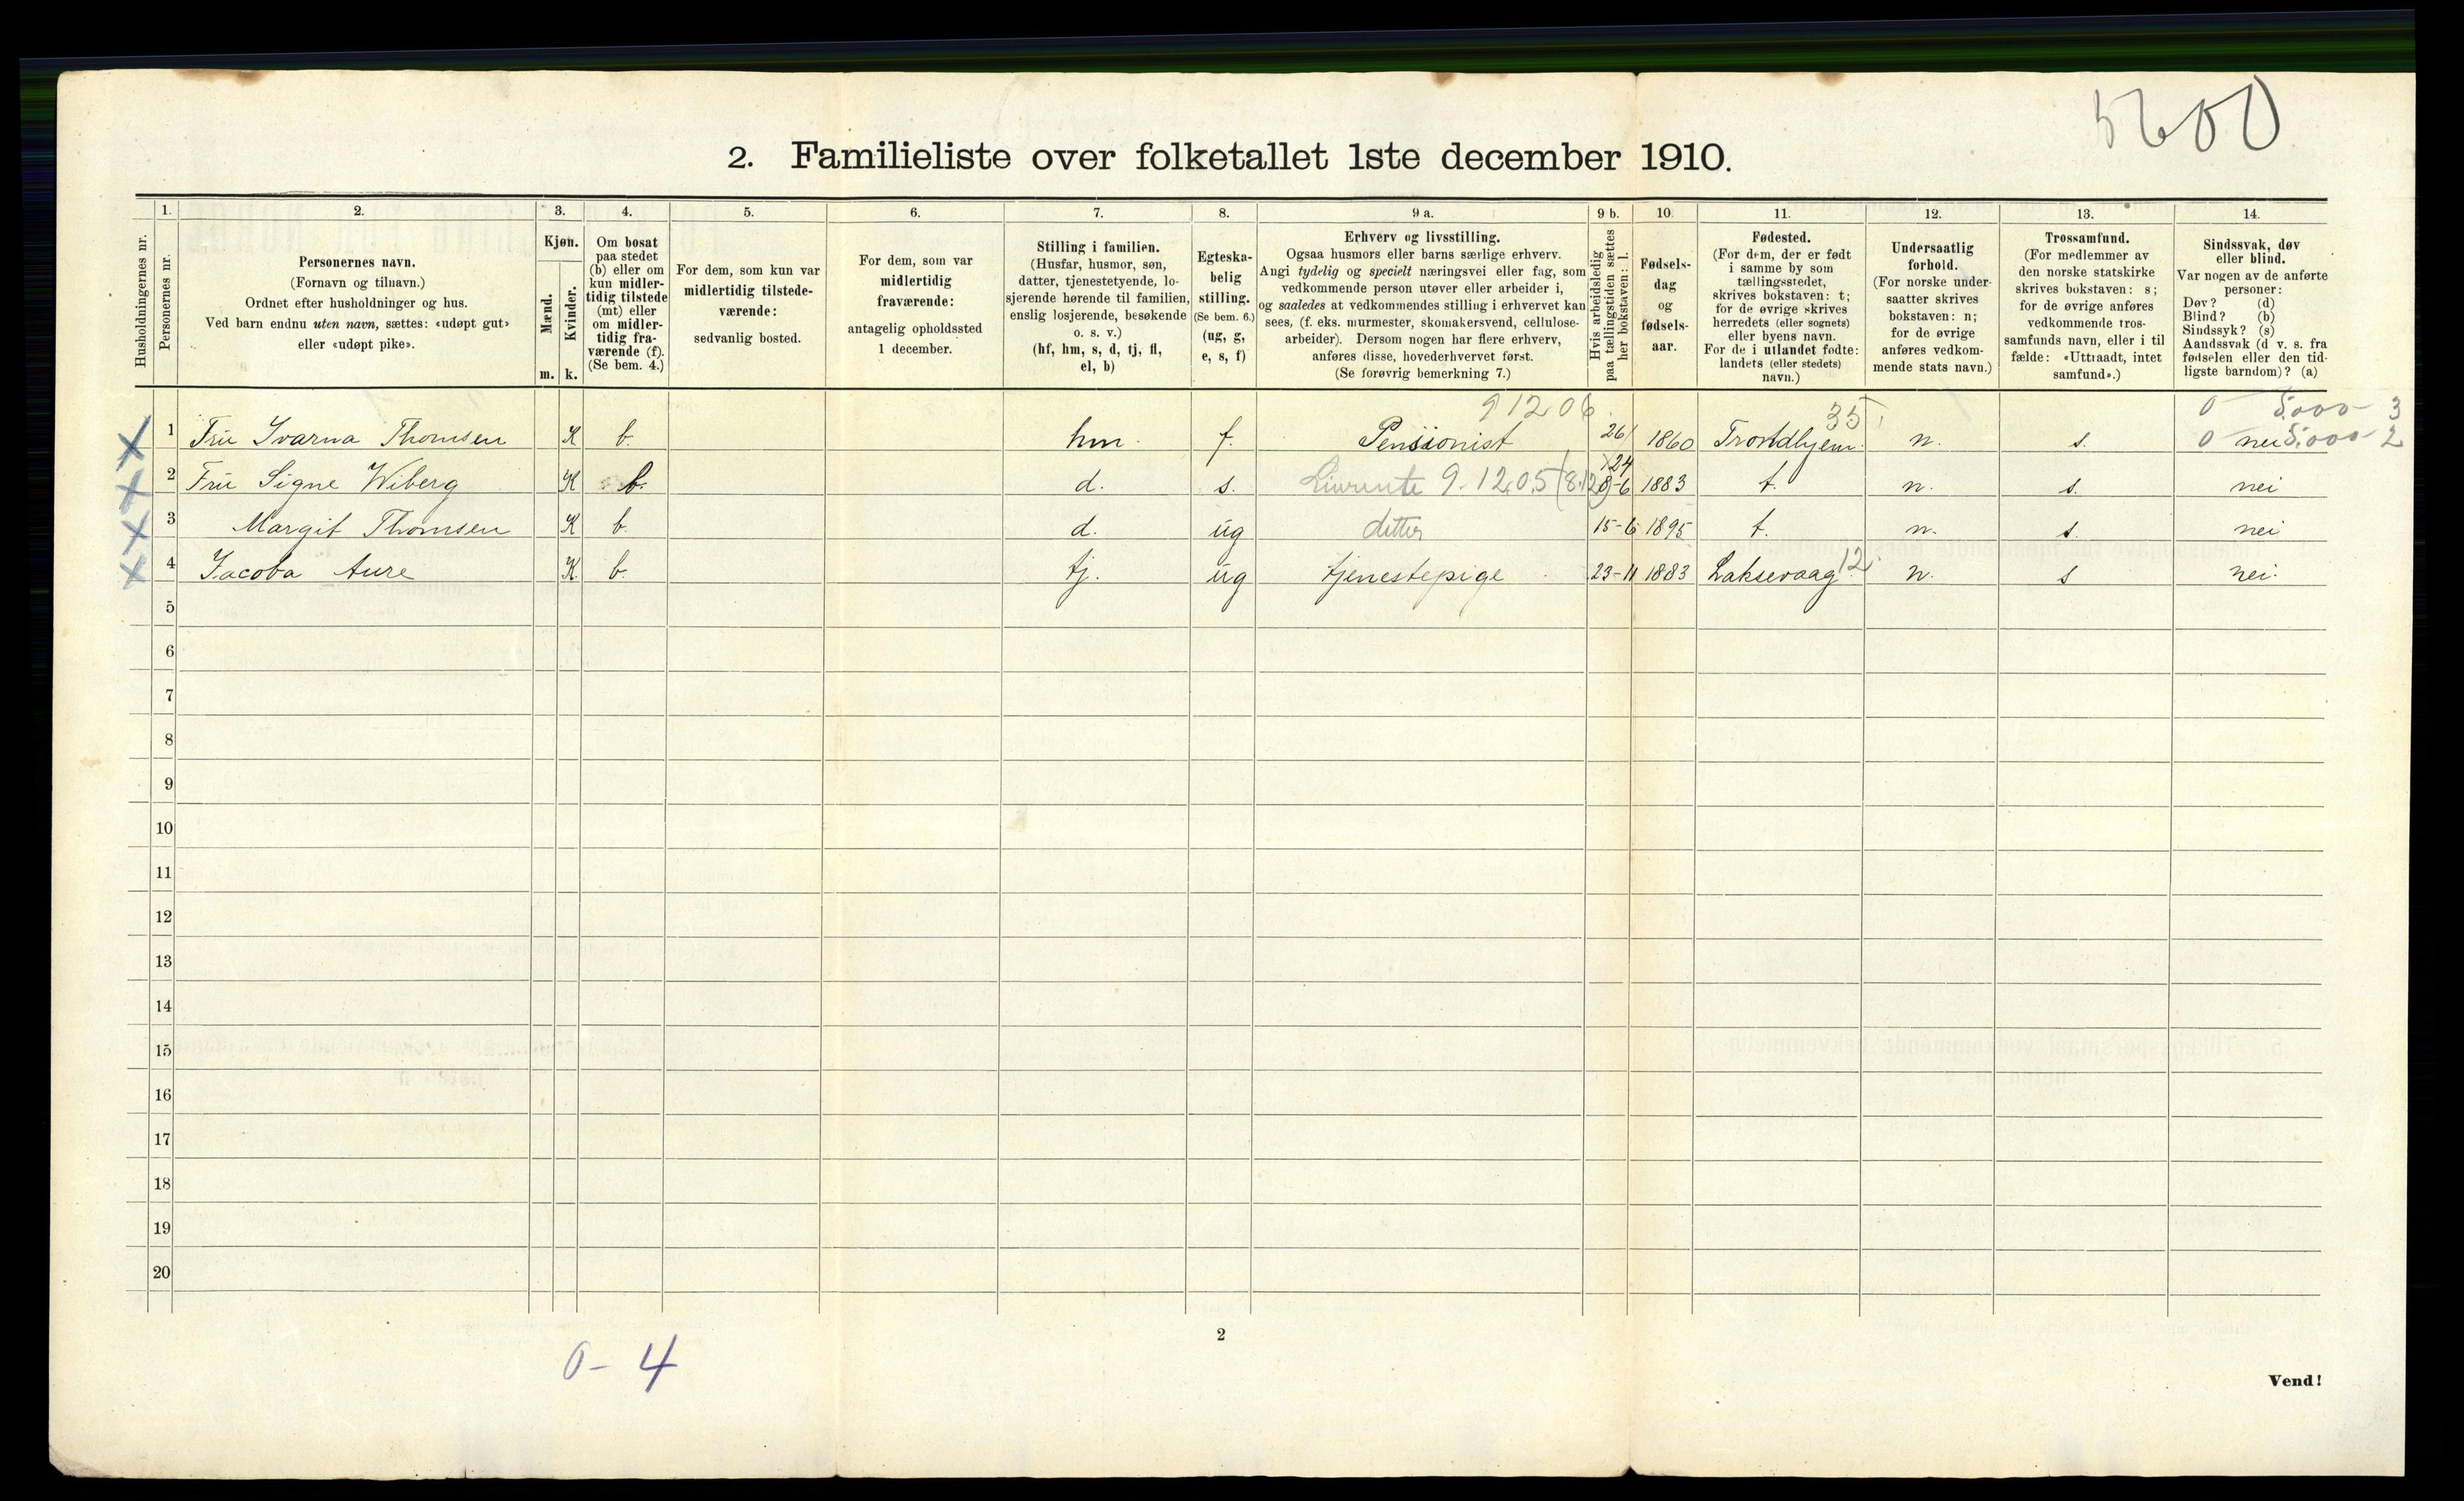 5600
2. Familieliste over folketallet 1ste december 1910.
1. 2. 3. 4. 5. 6. 7. 8. 9 a. 9 b. 10. 11. 12. 13. 14.
Husholdningernes nr.
Personernes nr.
Personernes navn.
(Fornavn og tilnavn.)
Ordnet efter husholdninger og hus.
Ved barn endnu uten navn, sættes: «udøpt gut»
eller «udøpt pike».
Kjøn.
Mænd.
Kvinder.
m. k.
Om bosat
paa stedet
(b) eller om
kun midler-
tidig tilstede
(mt) eller
om midler-
tidig fra-
værende (f).
(Se bem. 4.)
For dem, som kun var
midlertidig tilstede-
værende:
sedvanlig bosted.
For dem, som var
midlertidig
fraværende:
antagelig opholdssted
1 december.
Stilling i familien.
(Husfar, husmor, søn,
datter, tjenestetyende, lo-
sjerende hørende til familien,
enslig losjerende, besøkende
o. s. v.)
(hf, hm, s, d, tj, fl,
el, b)
Egteska-
belig
stilling.
(Se bem. 6.)
(ug, g,
e, s, f)
Erhverv og livsstilling.
Ogsaa husmors eller barns særlige erhverv.
Angi tydelig og specielt næringsvei eller fag, som
vedkommende person utøver eller arbeider i,
og saaledes at vedkommendes stilling i erhvervet kan
sees, (f. eks. murmester, skomakersvend, cellulose-
arbeider). Dersom nogen har flere erhverv,
anføres disse, hovederhvervet først.
(Se forøvrig bemerkning 7.)
Hvis arbeidsledig
paa tællingstiden sættes
her bokstaven: l.
Fødsels-
dag
og
fødsels-
aar.
Fødested.
(For dem, der er født
i samme by som
tællingsstedet,
skrives bokstaven: t;
for de øvrige skrives
herredets (eller sognets)
eller byens navn.
For de i utlandet fødte:
landets (eller stedets)
navn.)
Undersaatlig
forhold.
(For norske under-
saatter skrives
bokstaven: n;
for de øvrige
anføres vedkom-
mende stats navn.)
Trossamfund.
(For medlemmer av
den norske statskirke
skrives bokstaven: s;
for de øvrige anføres
vedkommende tros-
samfunds navn, eller i til
fælde: «Uttraadt, intet
samfund».)
Sindssvak, døv
eller blind.
Var nogen av de anførte
personer:
Døv? (d)
Blind? (b)
Sindssyk? (s)
Aandssvak (d v. s. fra
fødselen eller den tid-
ligste barndom)? (a)
9 12 06 35 0 5.000 - 3
X 1 Fru Ivarna Thomsen K b. hm. f. Pensionist 26/ 1860 Trondhjem. n. s. 0 nei 5.000 - 2
X 2 Fru Signe Wiberg K b. d. s. Livrente 9.12.05 8-6 1883 t. n. s. nei
X 3 Margit Thomsen K b. d. ug ditto 15-6 1895 t. n. s. nei
X 4 Jacoba Aure K. b. tj. ug tjenestepige 23-11 1883 Laksevaag 12 n. s nei.
5
6
7
8
9
10
11
12
13
14
15
16
17
18
19
20
2
0 - 4
Vend!